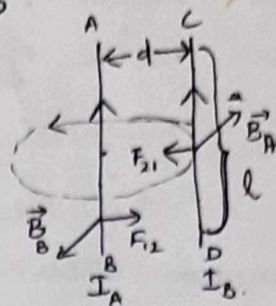 A C
d
B⃗_A
F₂₁
l
B⃗_B F₁₂
B D
I_A I_B.